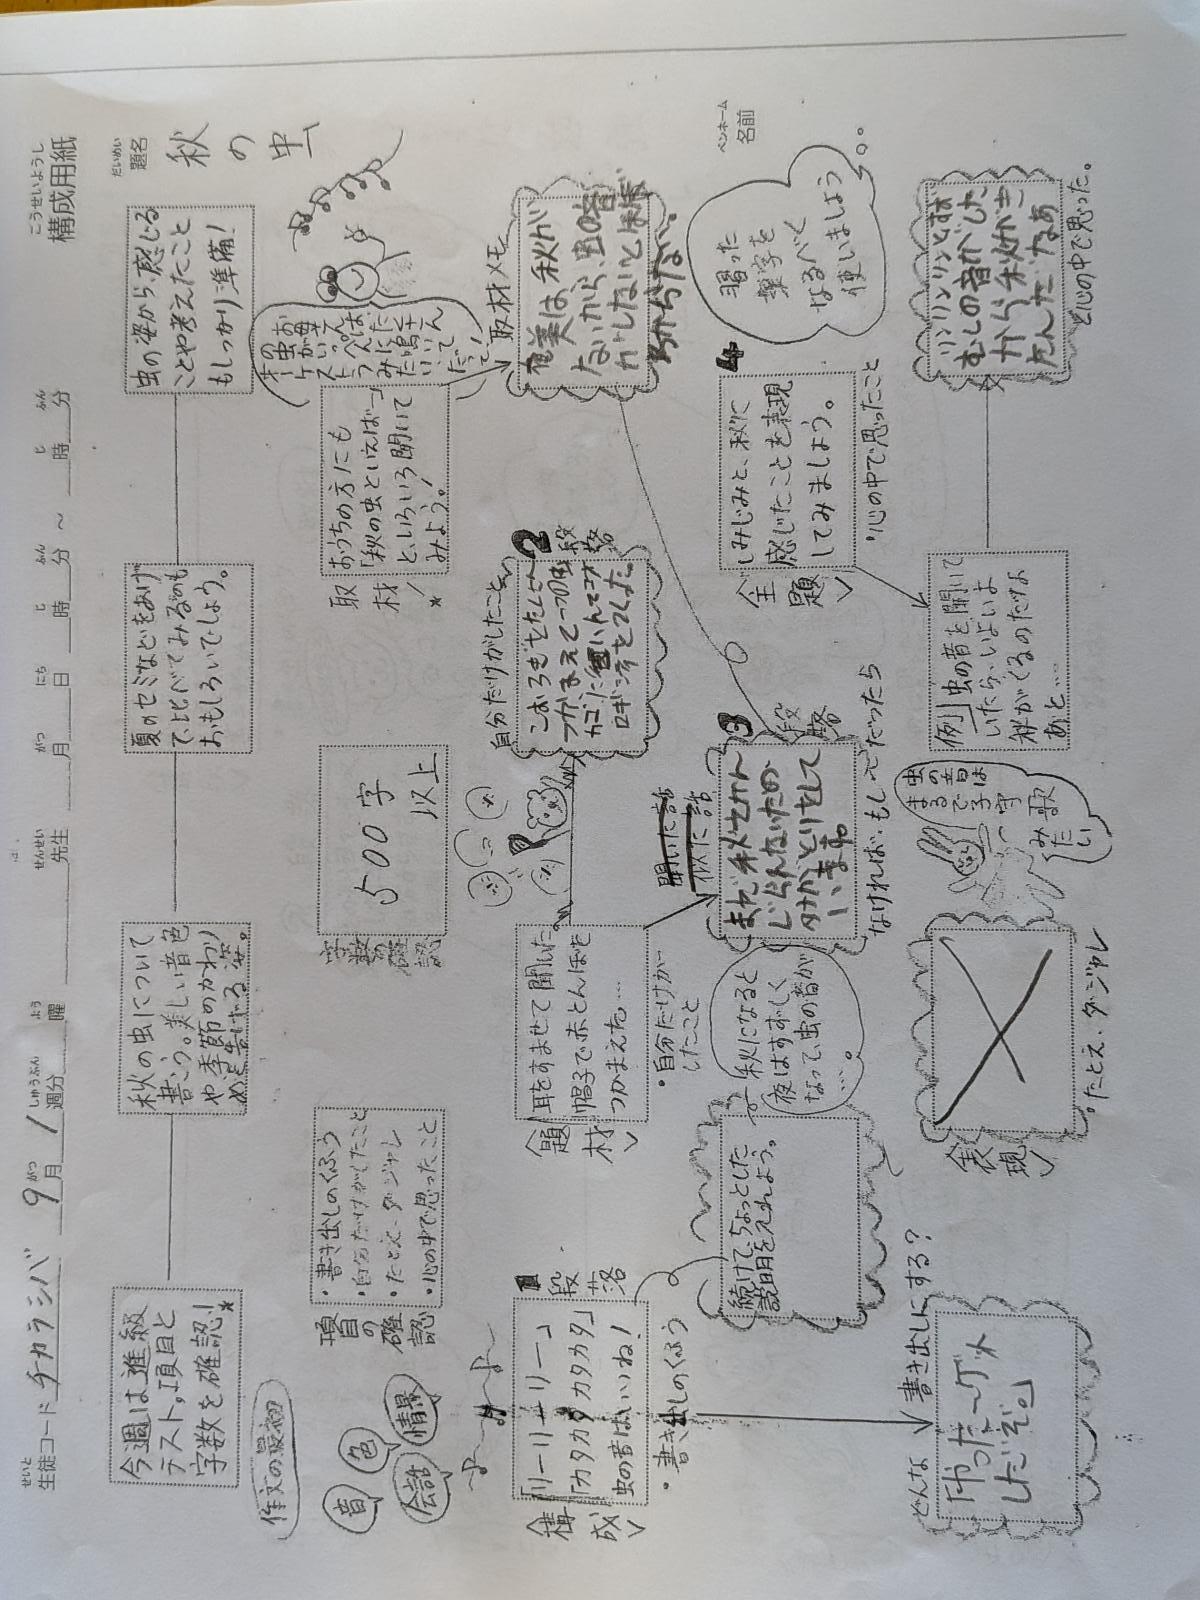 こうせいようし
構成用紙
せいと
生徒コード チカラシバ 9月 1 週分 曜 先生 月 日 時 分 ～ 時 分
がつ しゅうぶん よう せんせい がつ にち じ ふん じ ふん
だいめい
題名
秋の虫
今週は進級
テスト,項目と
字数を確認!
秋の虫について
書こう。美しい音色
や季節のかわり
めを告げる姿。
夏のセミなどをあげ
て、比べてみるのも
おもしろいでしょう。
虫の姿から、感じる
ことや考えたこと
もしっかり準備!
作文の最初
音
色
会話
情景
項目の確認
・書き出しのくふう
・自分だけがしたこと
・たとえ、ダジャレ
・心の中で思ったこと
字数の確認
500字
以上
取材
おうちの方にも
「秋の虫といえば…」
と、いろいろ聞いて
みよう。
取材メモ
奄美は、秋が
ないから、虫の音
がしないとほぼ
わからない。
＜構成＞
「リーリーリーリー」
「カタカタカタカタ」
虫の音はいいね!
・書き出しのくふう
1段落
＜題材＞
耳をすませて聞いた
帽子で赤とんぼを
つかまえた…
・自分だけが
したこと
自分だけがしたこと
2段落
ペンネーム
名前
習った
漢字を
なるべく
使いましょう
続けて、ちょっとした
説明を入れよう。
秋になると
夜はすずしく
なって、虫の音が
……。
聞いた話
似た話
3段落
なければ、もし～だったら
＜主題＞
しみじみと、秋に
感じたことを表現
してみましょう。
・心の中で思ったこと
4
どんな書き出しにする?
「やった～ゲット
したぞ。」
＜表現＞
・たとえ、ダジャレ
虫の音は
まるで子守
歌
みたい
例
虫の音を聞いて
いたら、いよいよ
秋がくるのだな
あと…
リンリンリンリンとすず
むしの音がした
から秋がき
たんだなあ
と心の中で思った。